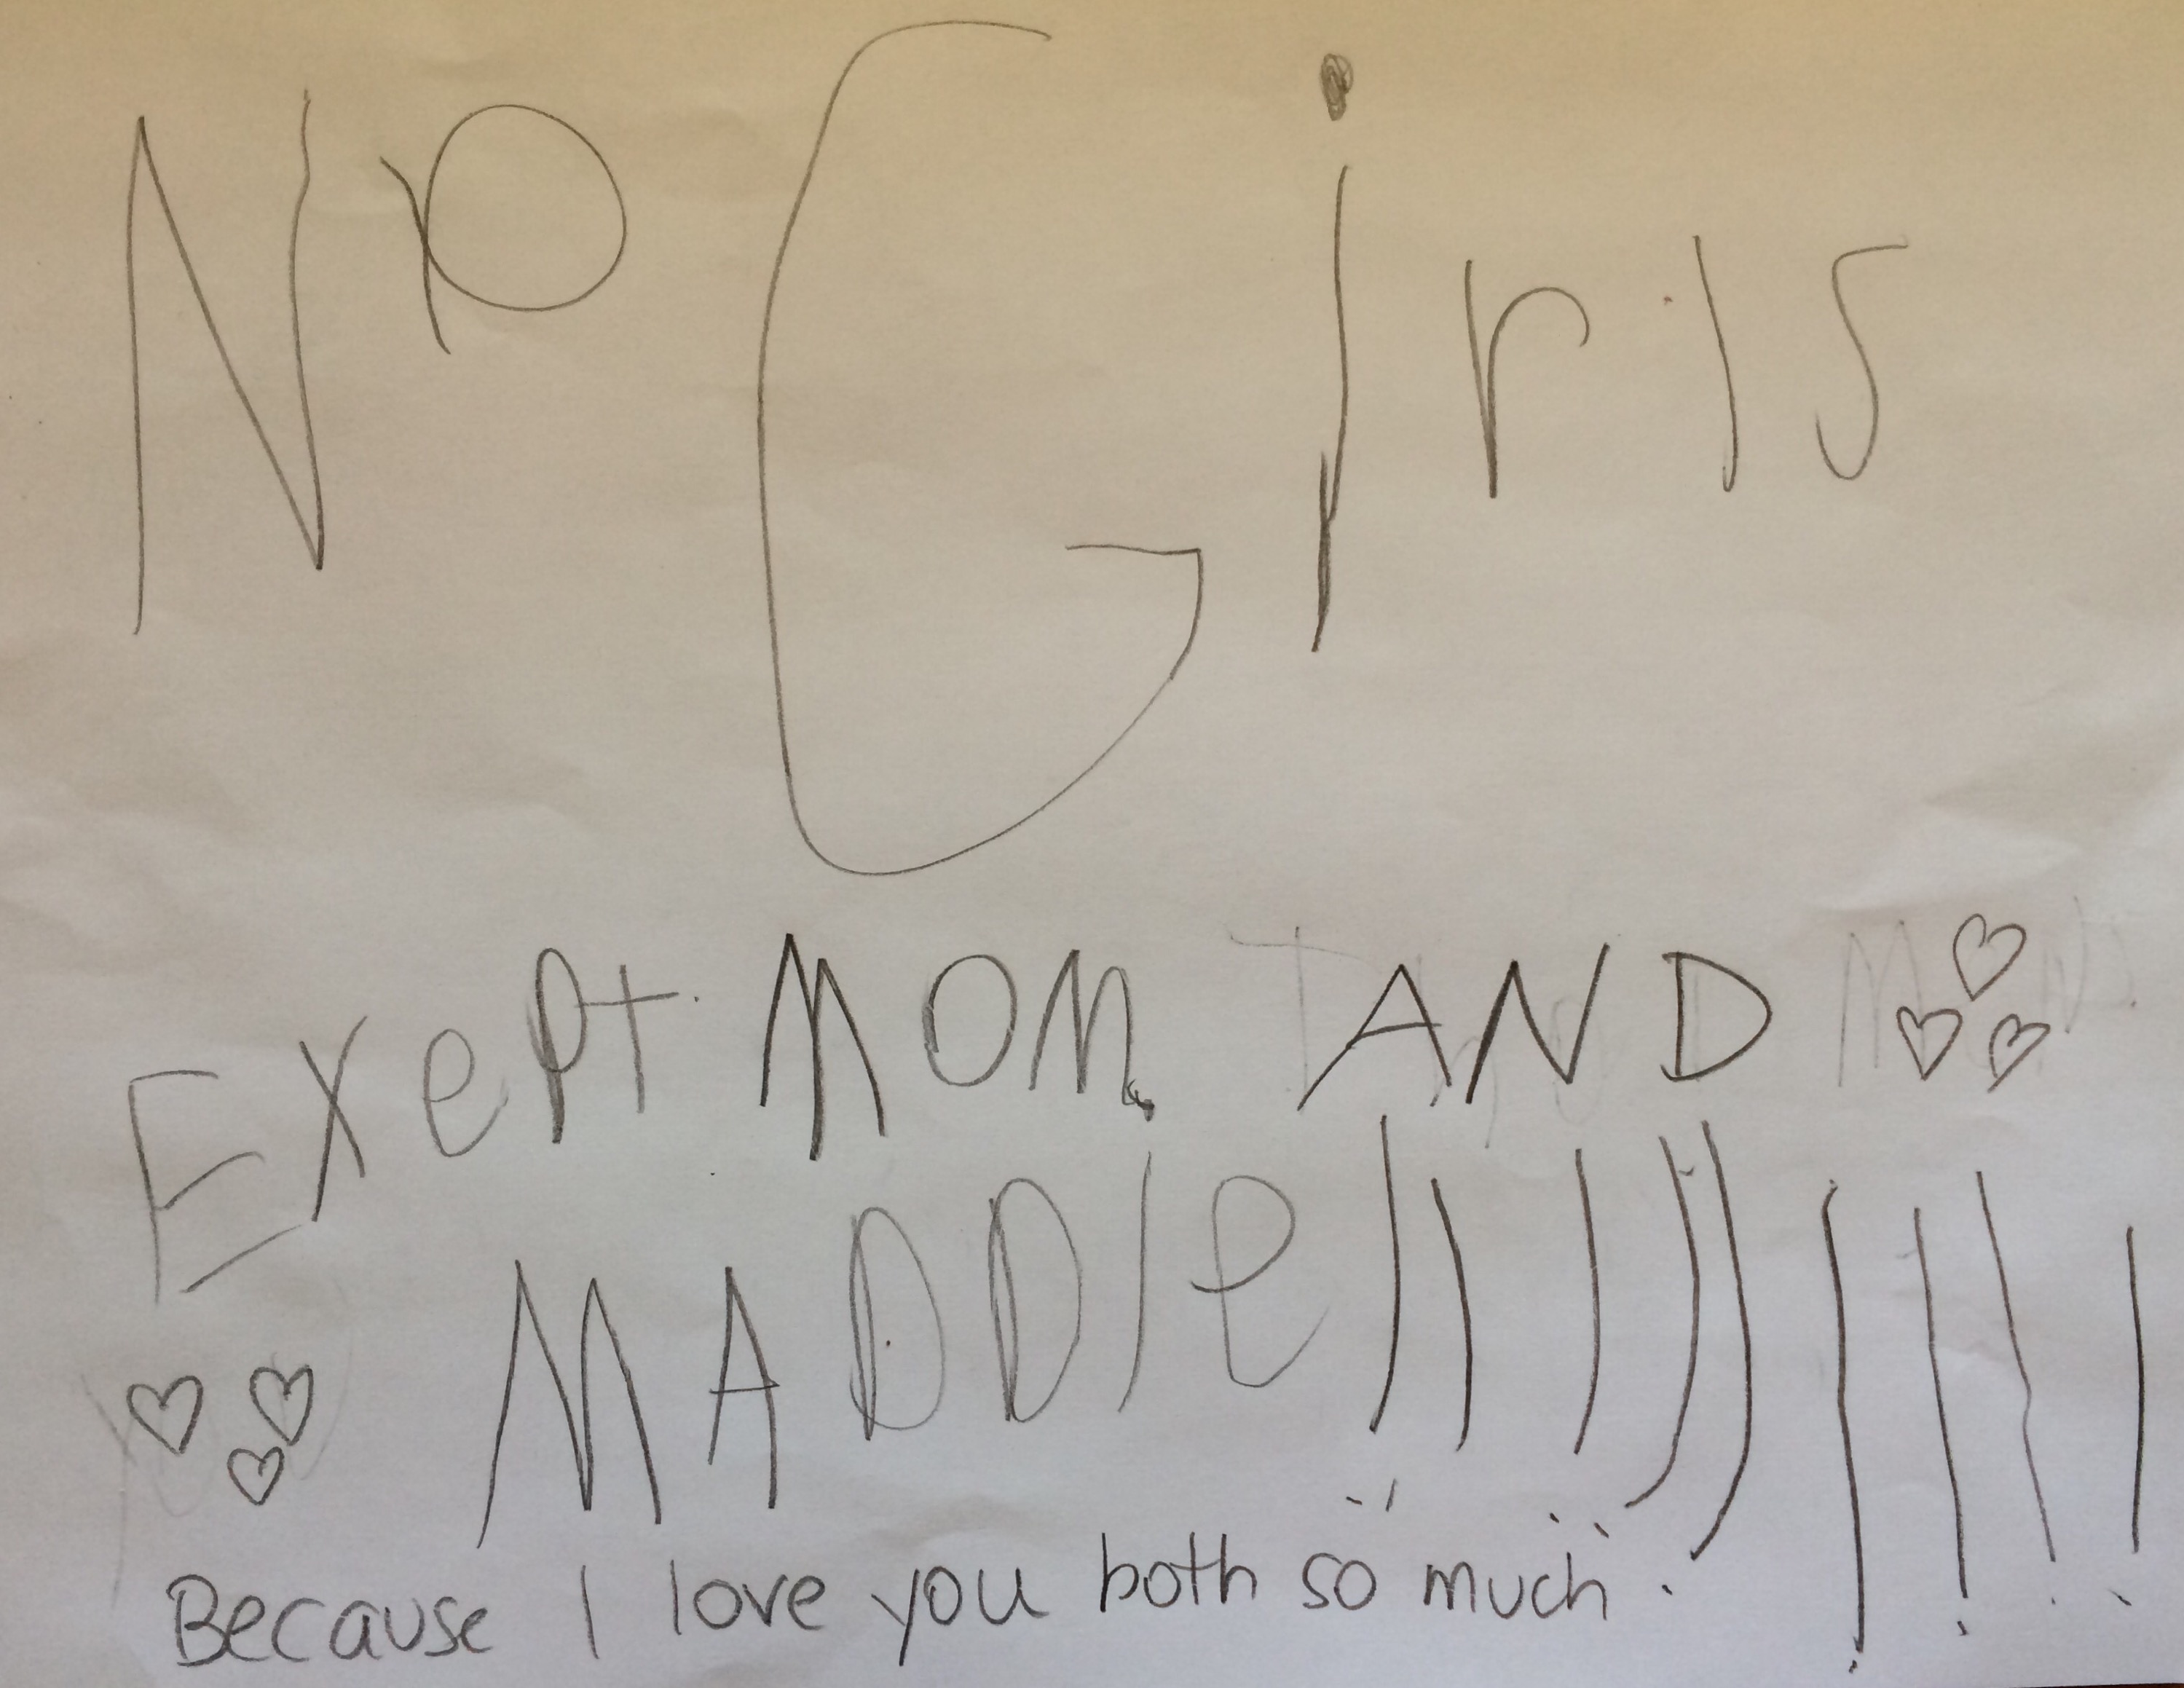 No Girls
Exept MOM AND
MADDIe!!!!!!!!!
Because I love you both so much.